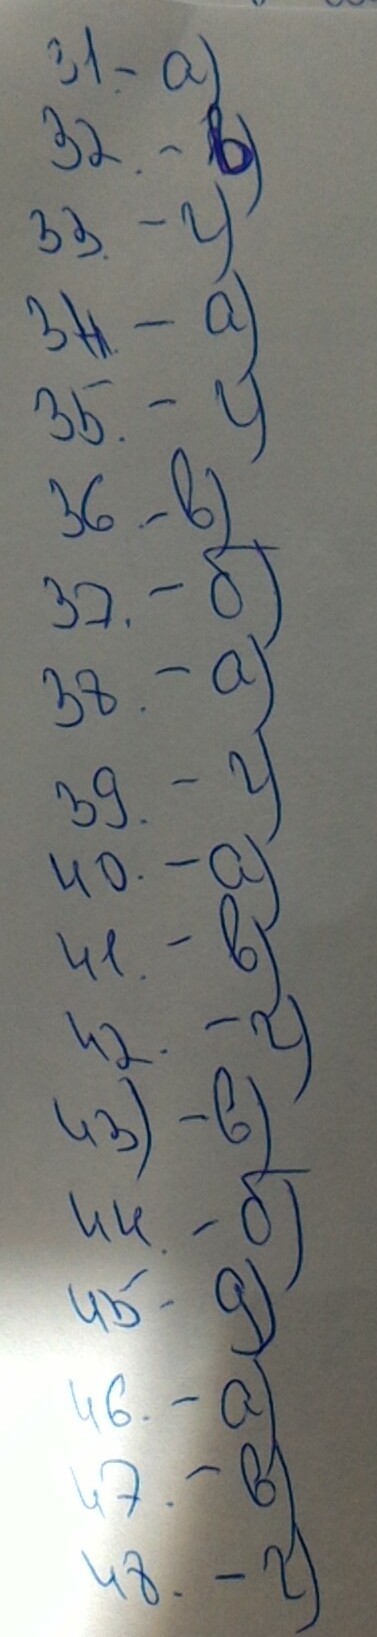 31. - а)
32. - в)
33. - г)
34. - а)
35. - г)
36. - в)
37. - б)
38. - а)
39. - г)
40. - а)
41. - в)
42. - г)
43) - в)
44. - б)
45 - а)
46. - а)
47. - в)
48. - г)